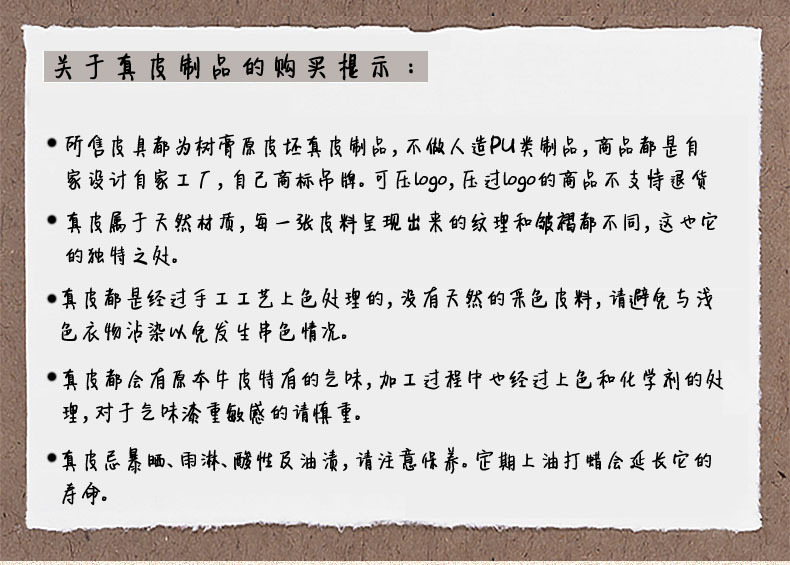 关于真皮制品的购买提示：
所售皮具都为树膏原皮坯真皮制品，不做人造PU类制品，商品都是自
家设计自家工厂，自己商标吊牌。可压logo，压过logo的商品不支持退货
真皮属于天然材质，每一张皮料呈现出来的纹理和皱褶都不同，这也它
的独特之处。
真皮都是经过手工工艺上色处理的，没有天然的彩色皮料，请避免与浅
色衣物沾染以免发生串色情况。
真皮都会有原本牛皮特有的气味，加工过程中也经过上色和化学剂的处
理，对于气味漆重敏感的请慎重。
真皮忌暴晒、雨淋、酸性及油渍，请注意保养。定期上油打蜡会延长它的
寿命。